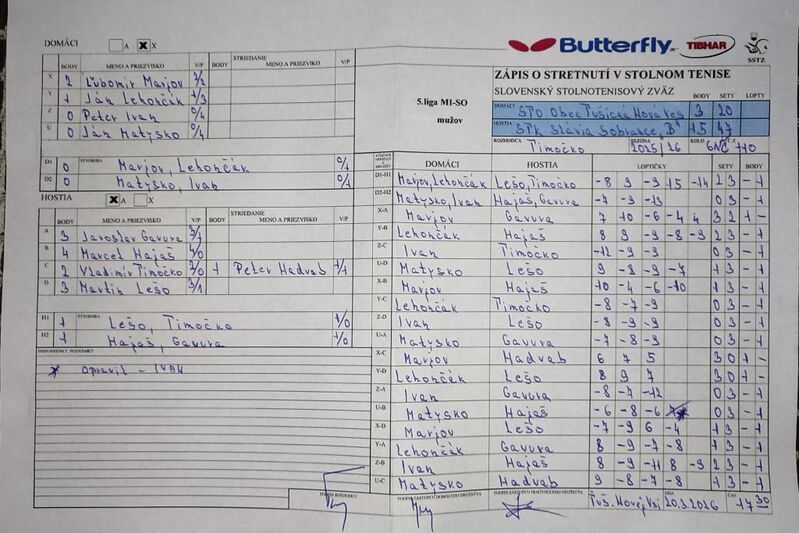 Butterfly
TIBHAR
SSTZ
DOMÁCI A X X
ZÁPIS O STRETNUTÍ V STOLNOM TENISE
SLOVENSKÝ STOLNOTENISOVÝ ZVÄZ
5.liga MI-SO
mužov
BODY SETY LOPTY
DOMÁCI STO Obec Tušická Nová Ves 3 20
HOSTIA STK Slávia Sobrance "B" 15 47
ROZHODCA Timočko SEZÓNA 2025/26 KOLO
BODY MENO A PRIEZVISKO V/P BODY STRIEDANIE MENO A PRIEZVISKO V/P
X 2 Ľubomír Marjov 2/2
Y 1 Ján Lehončák 1/3
Z 0 Peter Ivan 0/4
U 0 Ján Matysko 0/4
D1 0 ŠTVORHRA Marjov, Lehončák 0/1
D2 0 Matyško, Ivan 0/1
HOSTIA X
BODY MENO A PRIEZVISKO V/P BODY STRIEDANIE MENO A PRIEZVISKO V/P
A 3 Jaroslav Gavura 3/1
B 4 Marcel Hajaš 4/0
C 2 Vladimír Timočko 2/0 1 Peter Hadvab 1/1
D 3 Martin Lešo 3/1
H1 1 ŠTVORHRA Lešo, Timočko 1/0
H2 1 Hajaš, Gavura 1/0
PRIPOMIENKY, POZNÁMKY
* Opravil - IVAN
DOMÁCI HOSTIA LOPTIČKY SETY BODY
D1-H1 Marjov, Lehončák Lešo, Timočko -8 9 -9 15 -14 2 3 - 1
D2-H2 Matyško, Ivan Hajaš, Gavura -7 -9 -13 0 3 - 1
X-A Marjov Gavura 7 10 -6 -4 4 3 2 1 -
Y-B Lehončák Hajaš 8 9 -9 -8 -9 2 3 - 1
Z-C Ivan Timočko -12 -9 -9 0 3 - 1
U-D Matysko Lešo 9 -8 -9 -7 1 3 - 1
X-B Marjov Hajaš 10 -4 -6 -10 1 3 - 1
Y-C Lehončák Timočko -8 -7 -9 0 3 - 1
Z-D Ivan Lešo -8 -9 -9 0 3 - 1
U-A Matysko Gavura -7 -8 -9 0 3 - 1
X-C Marjov Hadvab 6 7 5 3 0 1 -
Y-D Lehončák Lešo 8 9 7 3 0 1 -
Z-A Ivan Gavura -8 -7 -12 0 3 - 1
U-B Matysko Hajaš -6 -8 -6 0 3 - 1
X-D Marjov Lešo -7 -9 6 -4 1 3 - 1
Y-A Lehončák Gavura 8 -9 -7 -8 1 3 - 1
Z-B Ivan Hajaš 8 -9 -11 8 -9 2 3 - 1
U-C Matysko Hadvab 9 -8 -7 -8 1 3 - 1
PODPIS ROZHODCU
PODPIS ZÁSTUPCU DOMÁCEHO DRUŽSTVA
PODPIS ZÁSTUPCU HOSŤUJÚCEHO DRUŽSTVA
Tuš. Novej Vsi 20.3.2026 ČAS 17 30